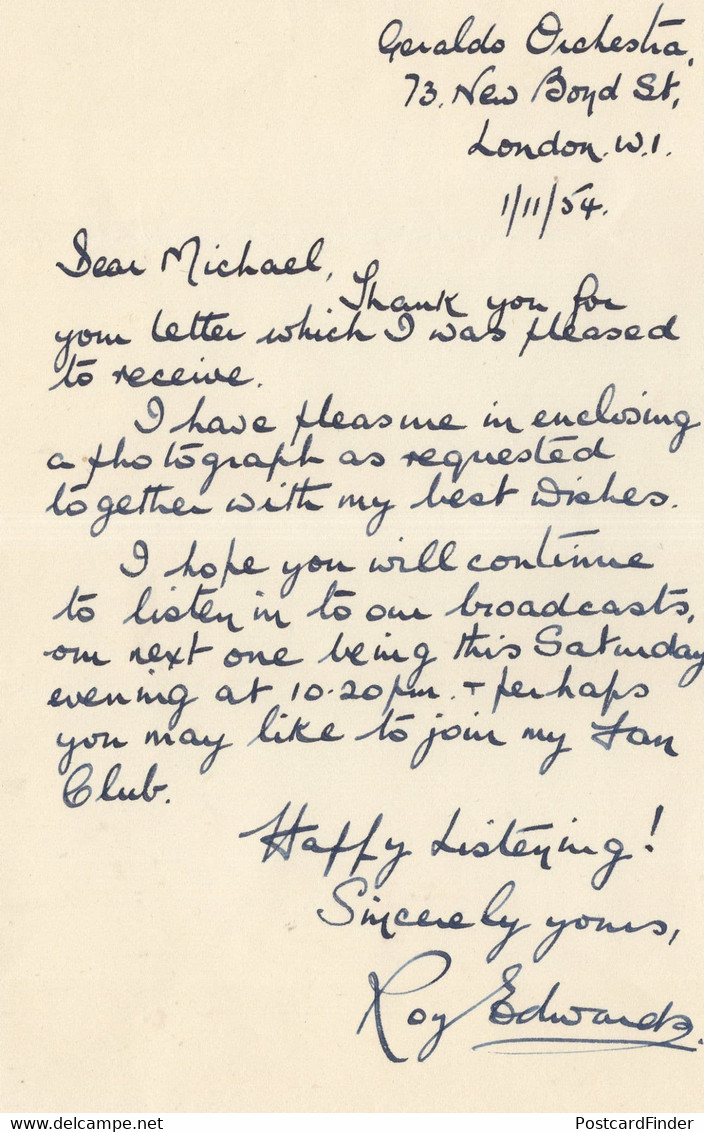 Geraldo Orchestra,
73, New Bond St,
London. W.1.
1/11/54.
Dear Michael,
Thank you for
your letter which I was pleased
to receive.
I have pleasure in enclosing
a photograph as requested
together with my best wishes.
I hope you will continue
to listen in to our broadcasts,
our next one being this Saturday
evening at 10.20pm. + perhaps
you may like to join my Fan
Club.
Happy Listening!
Sincerely yours,
Roy Edwards.
delcampe.net
PostcardFinder